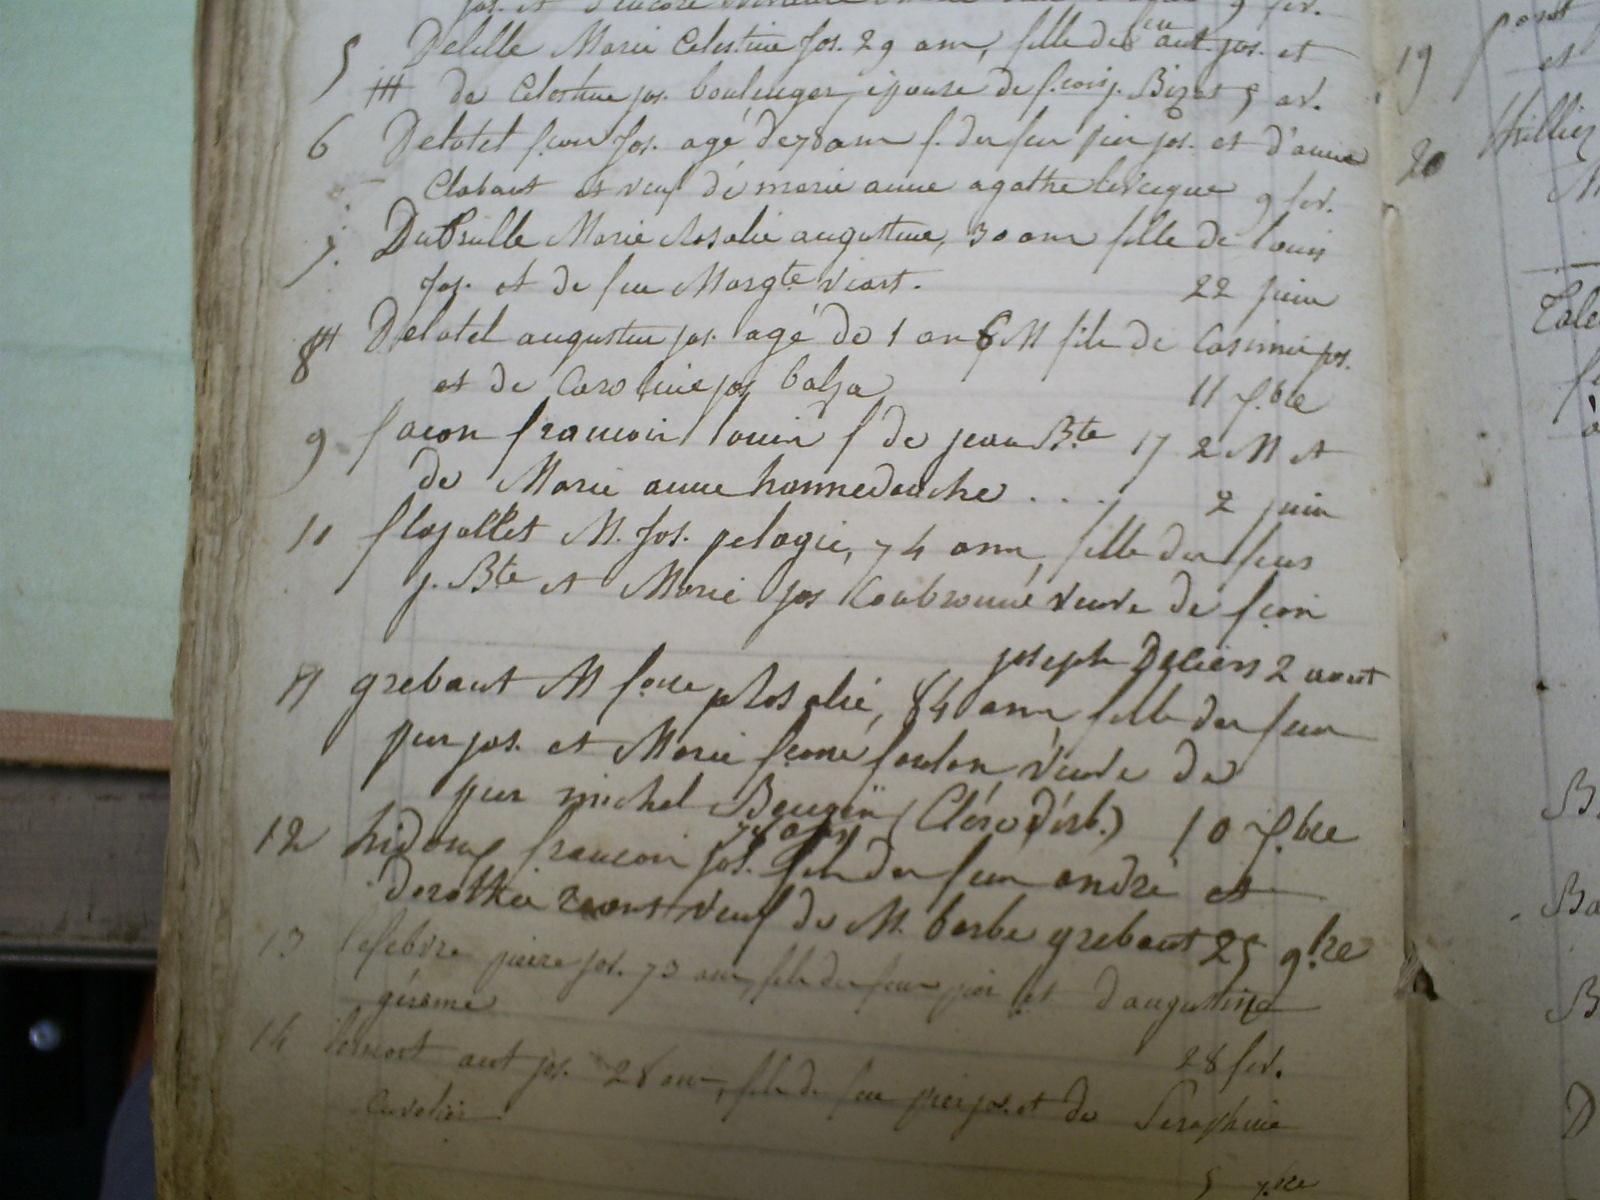 5 Delille Marie Celestine jos. 29 ans, fille de feu ant. jos. et
de Celestine jos. boulenger, épouse de f.cois j. Bizet 5 av.
6 Delotel fcois jos. agé de 78 ans f. des feu pier jos. et d'anne
Clabaut et veuf de marie anne agathe levecque 9 fev.
7. Dubrulle Marie Rosalie augustine, 30 ans fille de louis
jos. et de feu Margte viart. 22 juin
8 Delotel augustin jos. agé de 1 an 6 M fils de Casimir jos.
et de Caroline jos. balza 11 7.bre
9 facon francois louis f de jean Bte 17 2 M et
de Marie anne hannedouche . . . . 2 juin
10 flajollet M. jos. pelagie, 74 ans, fille des feus
j. Bte et Marie jos Coubronne veuve de fcois
joseph Deciers 2 aout
11 grebaut M fcoise Rosalie, 84 ans fille des feu
pier jos. et Marie fcoise foulon veuve de
pier michel Beugin (Cléro d'érb.) 10 7.bre
12 hidoux francois jos. 74 ans fils des feu andré et
Dorothée veuf de M. barbe grebaut 25 9.bre
13 lefebvre pierre jos. 73 ans, fils des feu pier et d'augustine
gérome
28 fev.
14 ant jos. 28 ans, fils de feu pier jos. et de Seraphine
Cuvelier
5 7.bre
19
20